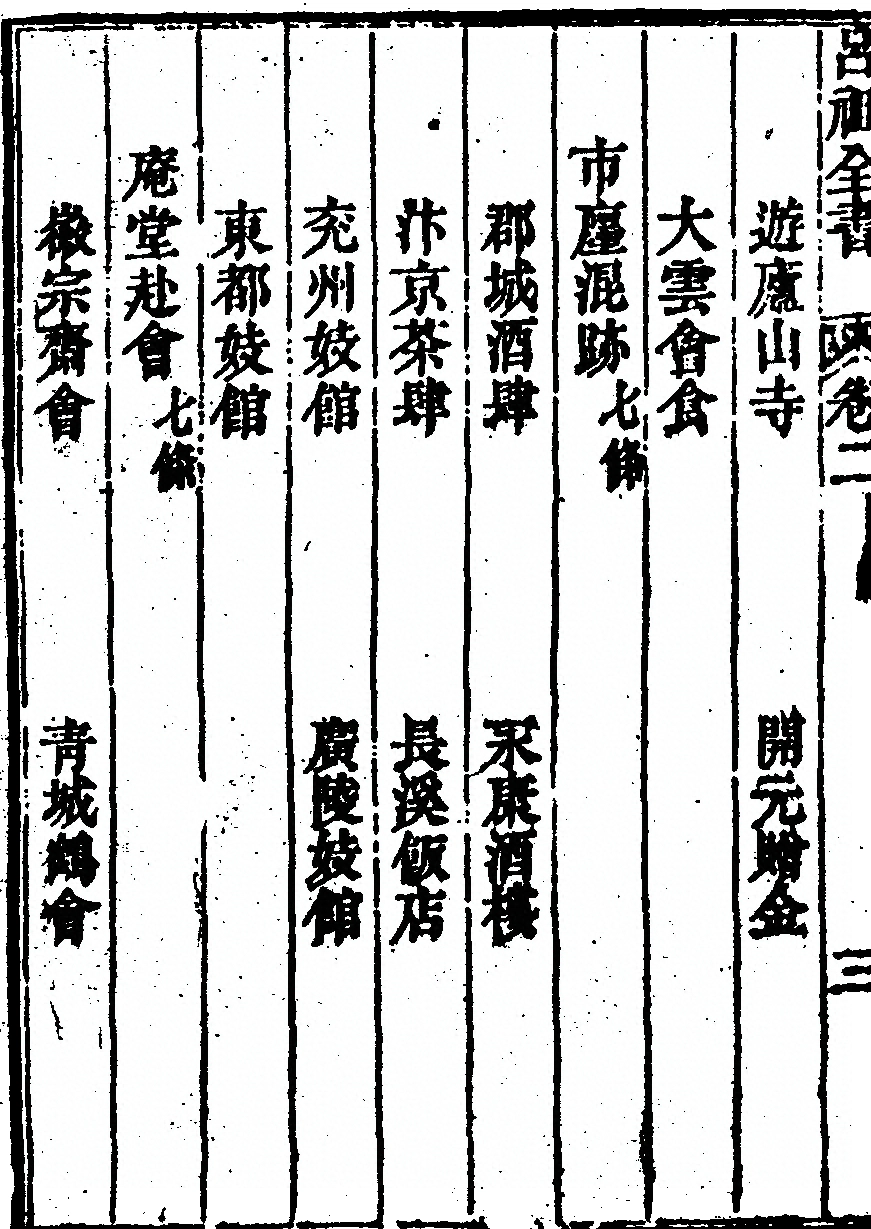 呂祖全書 卷二 三
遊廬山寺 開元贈金
大雲會食
市廛混跡 七條
郡城酒肆 永康酒樓
汴京茶肆 長溪飯店
兖州妓館 廣陵妓館
東都妓館
庵堂赴會 七條
徽宗齋會 青城鶴會